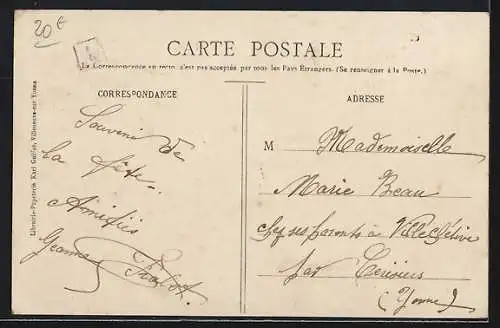 20 €
CARTE POSTALE
La Correspondance au recto, n'est pas acceptée par tous les Pays Etrangers. (Se renseigner à la Poste.)
CORRESPONDANCE
Souvenir de
la fête
Amitiés
Jeanne
ADRESSE
M Mademoiselle
Marie Beau
chez ses parents à Villechétive
par Cerisiers
(Yonne)
Librairie-Papeterie Karl Guillot, Villeneuve-sur-Yonne